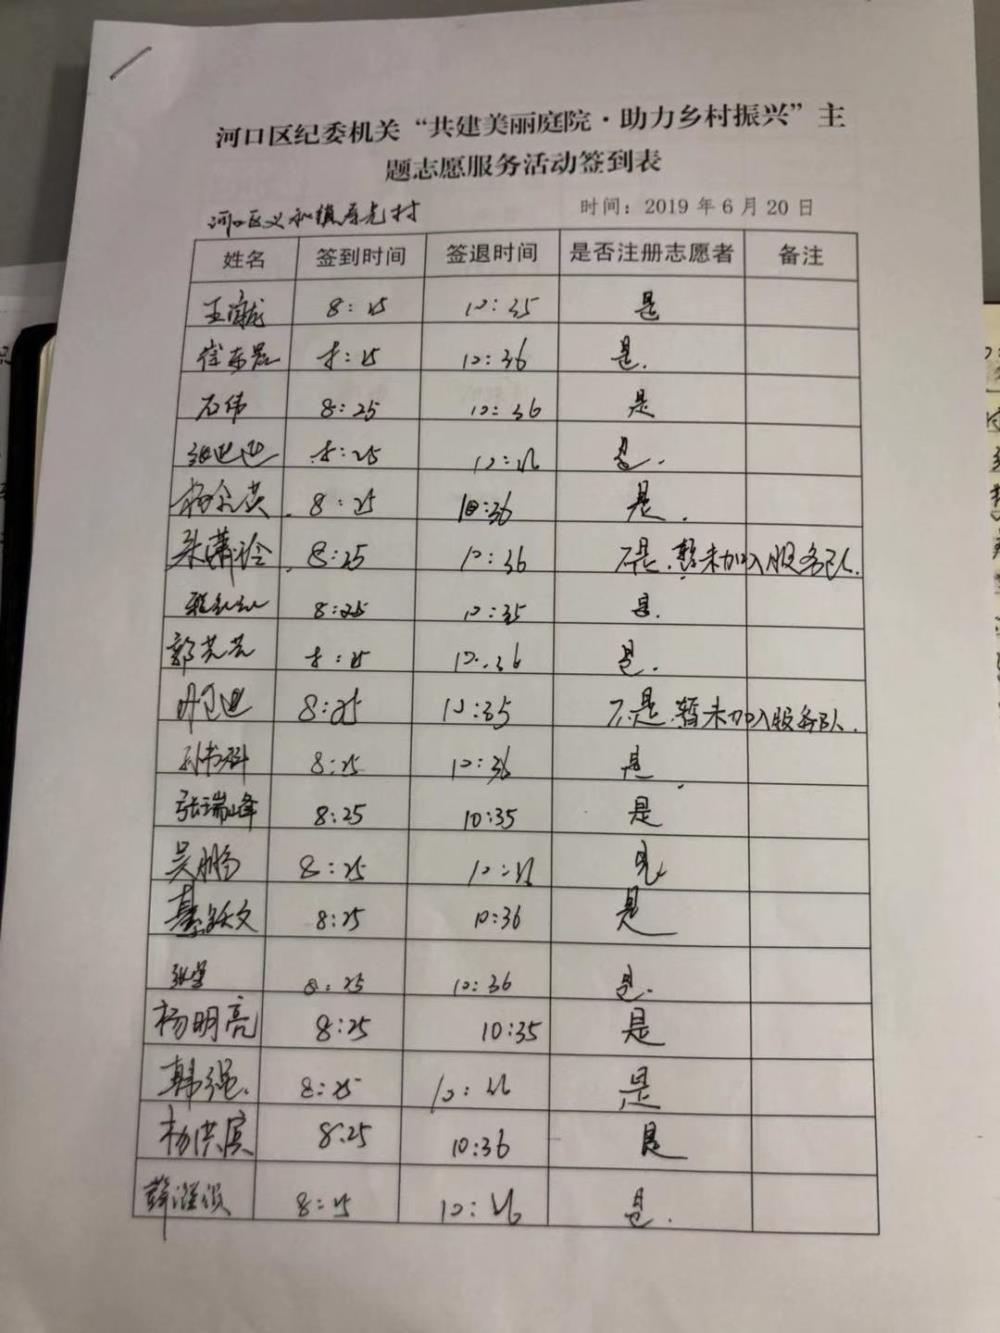 河口区纪委机关“共建美丽庭院·助力乡村振兴”主
题志愿服务活动签到表
河口区义和镇 村 时间：2019年6月20日
姓名 签到时间 签退时间 是否注册志愿者 备注
8:25 10:35 是
8:25 10:36 是.
石伟 8:25 10:36 是
8:25 10:36 是.
8:25 10:36 是.
8:25 10:36 不是.暂未加入服务队.
8:25 10:35 是.
郭芸芸 8:25 10:36 是.
8:25 10:35 不是.暂未加入服务队.
孙书科 8:25 10:36 是
张瑞峰 8:25 10:35 是
吴鹏 8:25 10:36 是
8:25 10:36 是
8:25 10:36 是.
杨明亮 8:25 10:35 是
韩强. 8:25 10:36 是
杨洪滨 8:25 10:36 是
8:25 10:36 是.